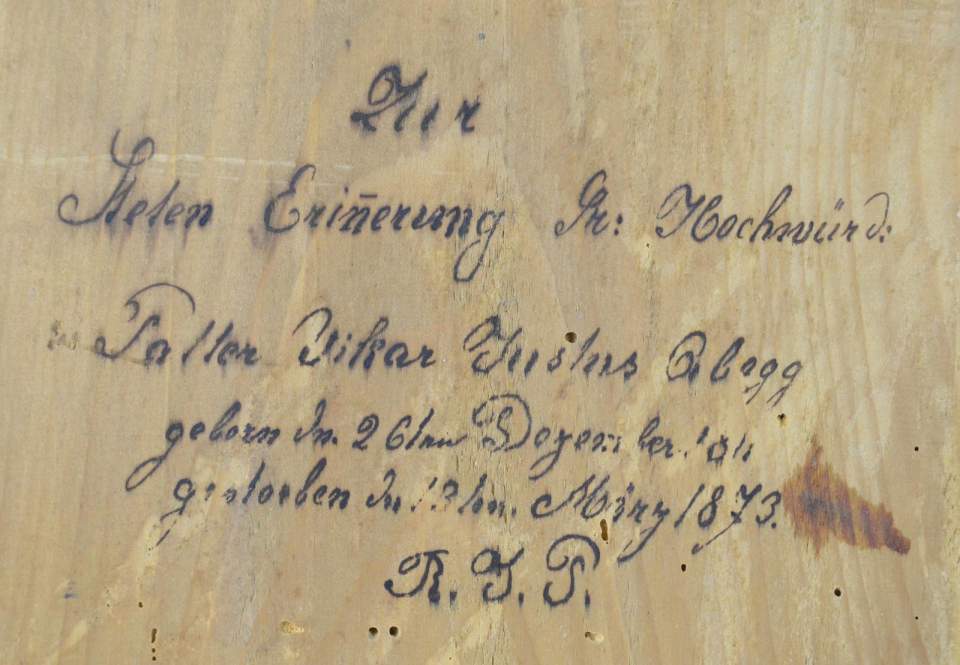 Zur
Steten Eriñerung Sr: Hochwürd:
Patter Vikar Justus Abegg
geborn dn. 26ten Dezember
gestorben dn 13tn. März 1873.
R. I. P.